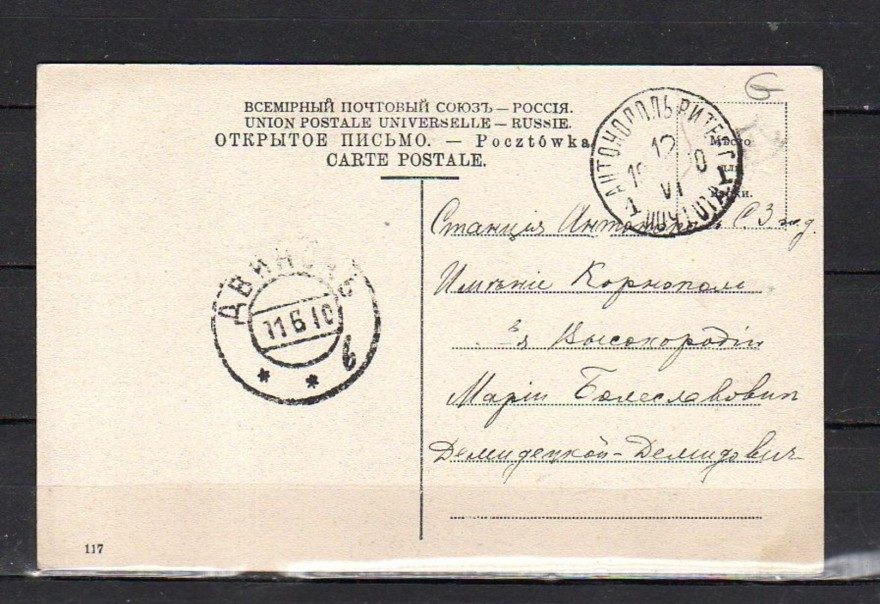 ВСЕМІРНЫЙ ПОЧТОВЫЙ СОЮЗЪ — РОССІЯ.
UNION POSTALE UNIVERSELLE — RUSSIE.
ОТКРЫТОЕ ПИСЬМО. — Pocztówka
CARTE POSTALE.
Мѣсто
для
марки.
АНТОНОПОЛЬ ВИТЕБ. Г.
12
VI
ПОЧТ. ОТД.
ДВИНСКЪ
11 6 10
* * 6
Станція С. З. ж. д.
Имѣніе Корнополь
Ея Высокородію
Маріи Болеславовнѣ
Демидецкой-Демидовичъ
117